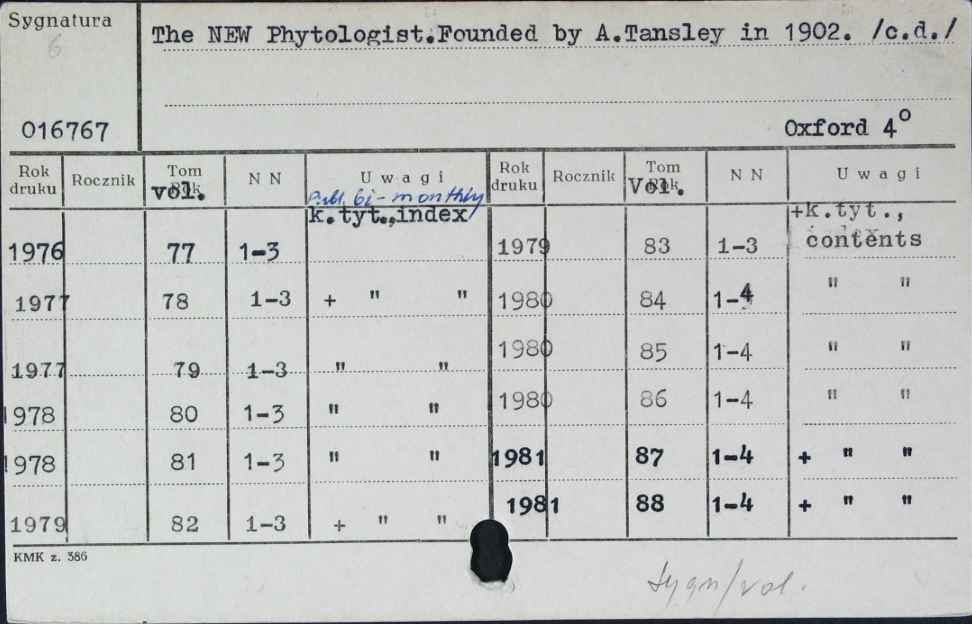 Sygnatura
6
The NEW Phytologist.Founded by A.Tansley in 1902. /c.d./
016767
Oxford 4º
Rok druku Rocznik Tom vol. N N Uwagi Rok druku Rocznik Tom Vol. N N Uwagi
Publ. bi-monthly
k.tyt.,index +k.tyt.,
1976 77 1-3 1979 83 1-3 contents
1977 78 1-3 + " " 1980 84 1-4 " "
1977 79 1-3 " " 1980 85 1-4 " "
1978 80 1-3 " " 1980 86 1-4 " "
1978 81 1-3 " " 1981 87 1-4 + " "
1979 82 1-3 + " " 1981 88 1-4 + " "
KMK z. 386
sygn/vol.